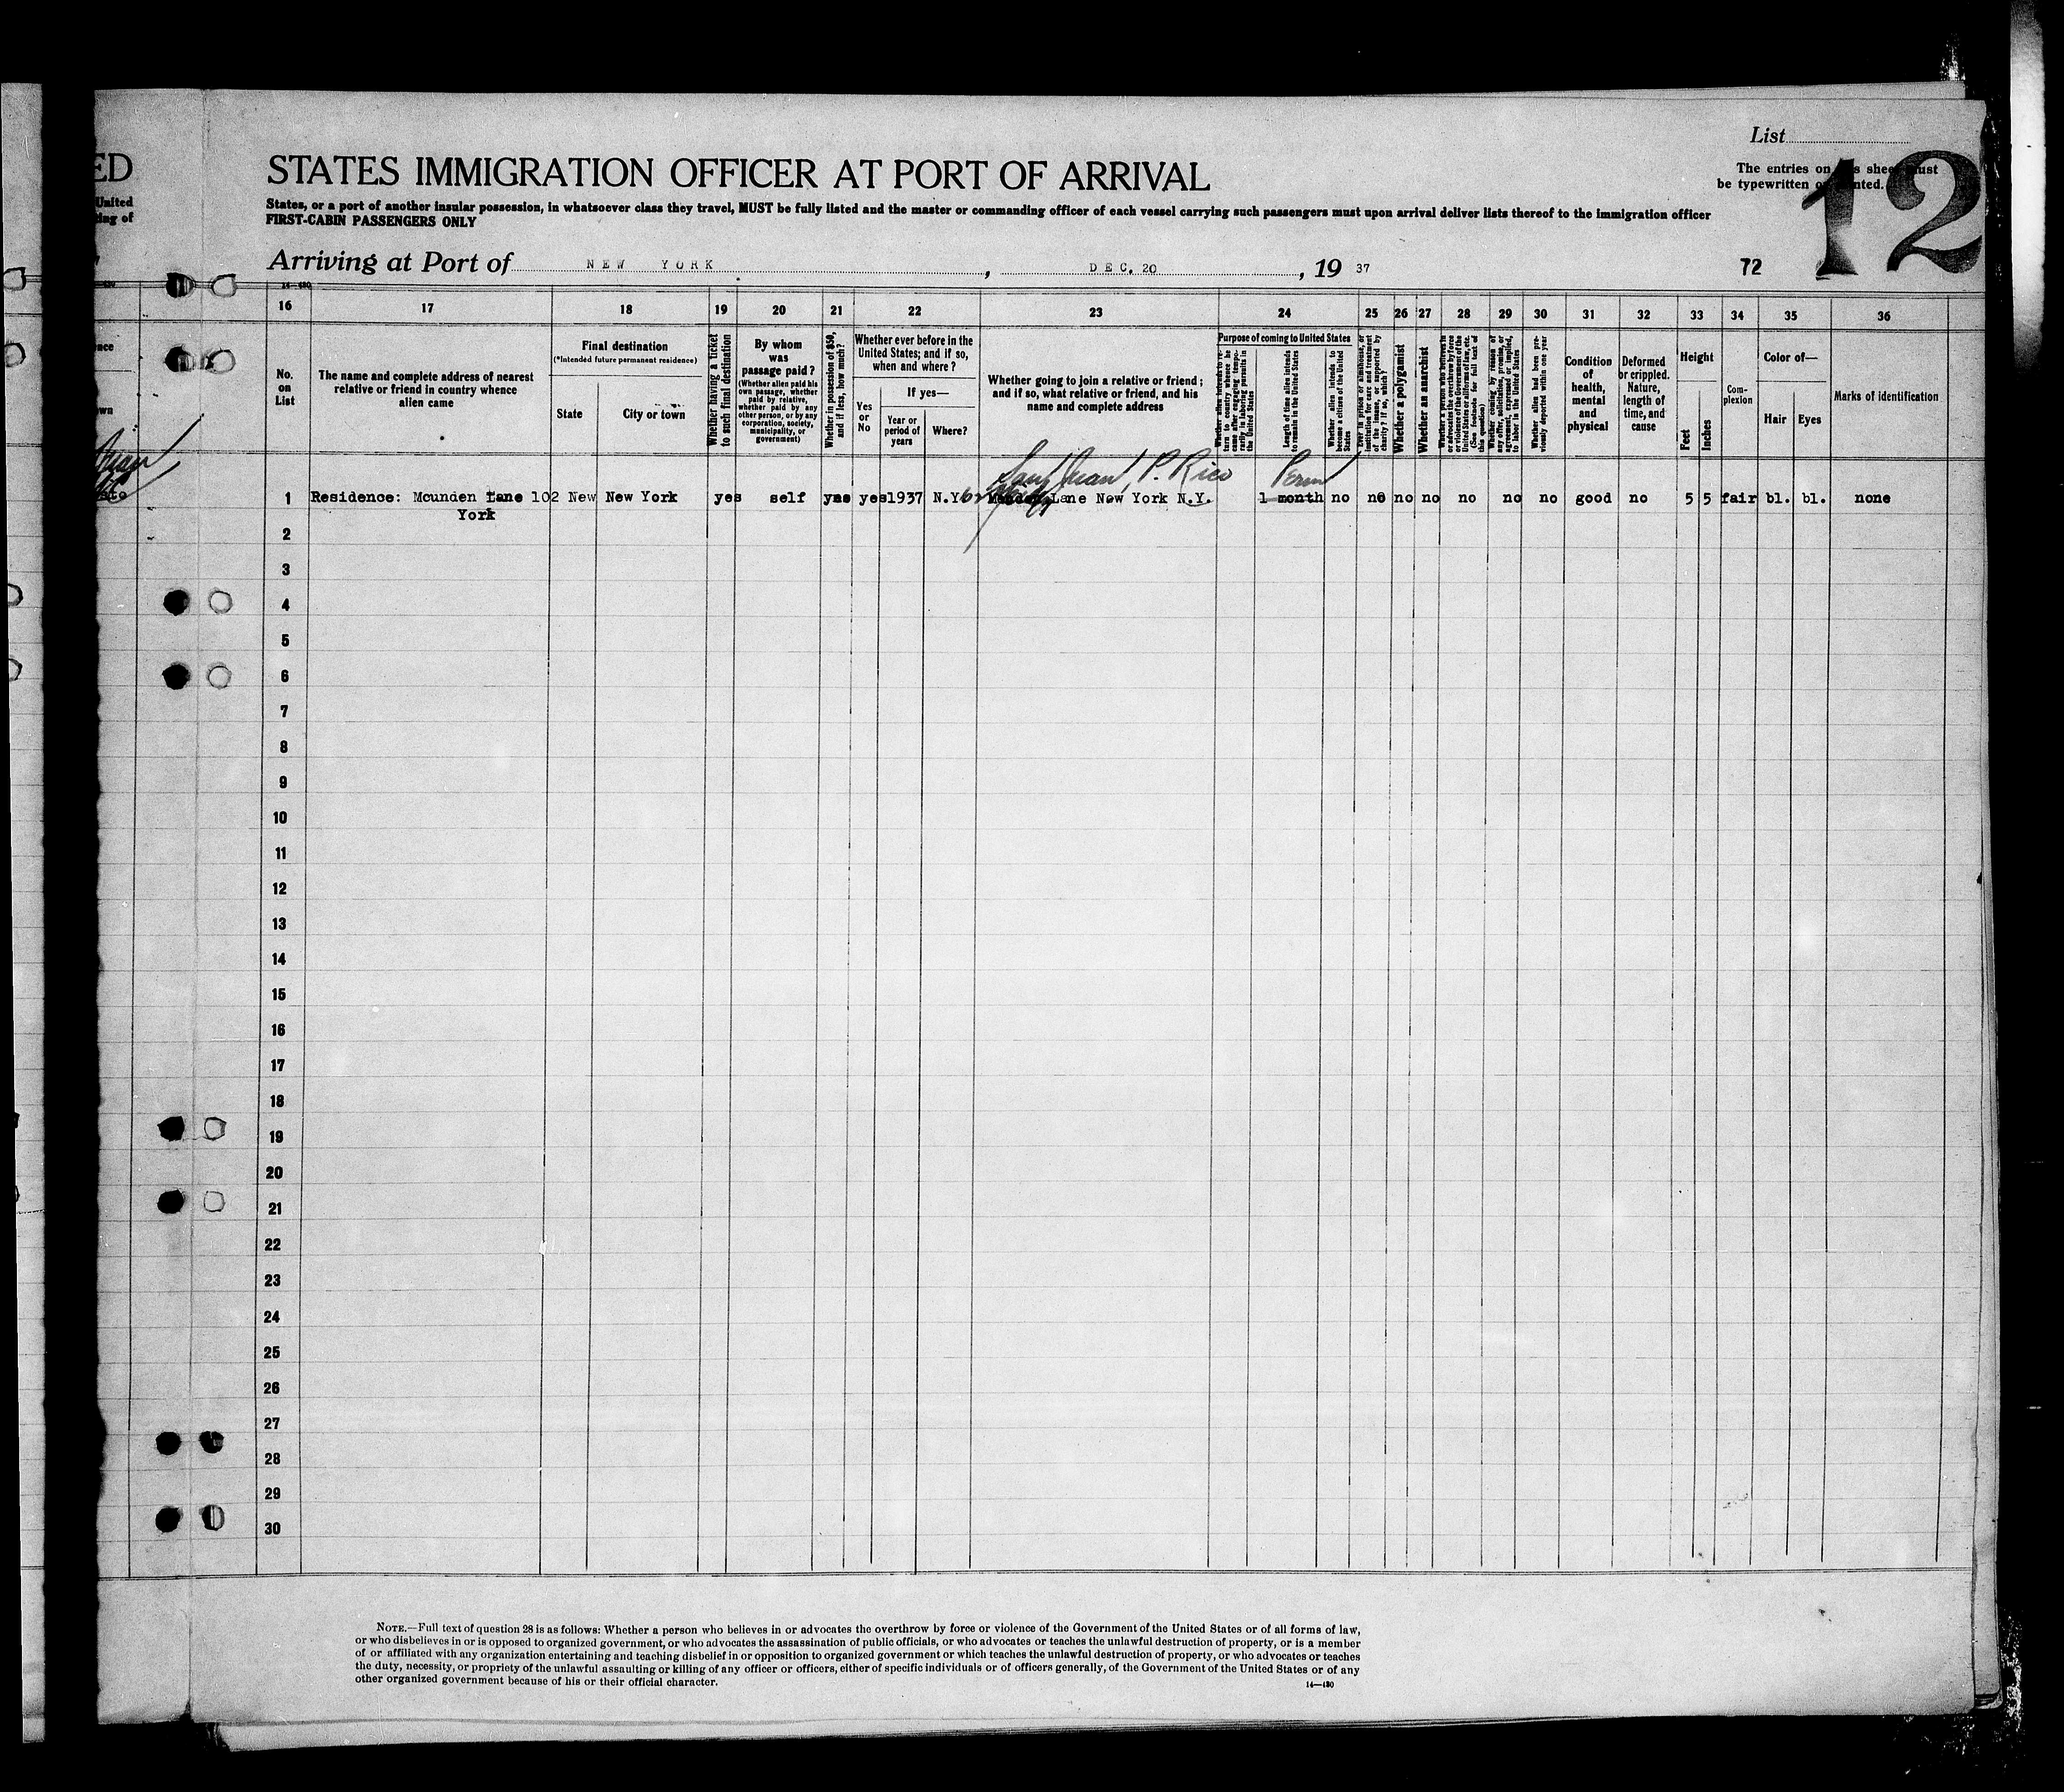 List
The entries on this sheet must
be typewritten or printed.
12
ED
STATES IMMIGRATION OFFICER AT PORT OF ARRIVAL
United
ing of
States, or a port of another insular possession, in whatsoever class they travel, MUST be fully listed and the master or commanding officer of each vessel carrying such passengers must upon arrival deliver lists thereof to the immigration officer
FIRST-CABIN PASSENGERS ONLY
Arriving at Port of NEW YORK, DEC. 20, 19 37
72
14-430
16 17 18 19 20 21 22 23 24 25 26 27 28 29 30 31 32 33 34 35 36
No. on List
The name and complete address of nearest relative or friend in country whence alien came
Final destination
(*Intended future permanent residence)
State
City or town
Whether having a ticket to such final destination
By whom was passage paid?
(Whether alien paid his own passage, whether paid by relative, whether paid by any other person, or by any corporation, society, municipality, or government)
Whether in possession of $50, and if less, how much?
Whether ever before in the United States; and if so, when and where?
Yes or No
If yes—
Year or period of years
Where?
Whether going to join a relative or friend; and if so, what relative or friend, and his name and complete address
Purpose of coming to United States
Whether alien intends to return to country whence he came after engaging temporarily in laboring pursuits in the United States
Length of time alien intends to remain in the United States
Whether alien intends to become a citizen of the United States
Ever in prison or almshouse, or institution for care and treatment of the insane, or supported by charity? If so, which?
Whether a polygamist
Whether an anarchist
Whether a person who believes in or advocates the overthrow by force or violence of the Government of the United States or all forms of law, etc. (See footnote for full text of this question)
Whether coming by reason of any offer, solicitation, promise, or agreement, expressed or implied, to labor in the United States
Whether alien had been previously deported within one year
Condition of health, mental and physical
Deformed or crippled. Nature, length of time, and cause
Height
Feet
Inches
Complexion
Color of—
Hair
Eyes
Marks of identification
San Juan, P. Rico Perm
1 Residence: Mcunden Lane 102 New New York yes self yes yes 1937 N.Y. Lane New York N.Y. 1 month no no no no no no no good no 5 5 fair bl. bl. none
York
2
3
4
5
6
7
8
9
10
11
12
13
14
15
16
17
18
19
20
21
22
23
24
25
26
27
28
29
30
NOTE.—Full text of question 28 is as follows: Whether a person who believes in or advocates the overthrow by force or violence of the Government of the United States or of all forms of law,
or who disbelieves in or is opposed to organized government, or who advocates the assassination of public officials, or who advocates or teaches the unlawful destruction of property, or is a member
of or affiliated with any organization entertaining and teaching disbelief in or opposition to organized government or which teaches the unlawful destruction of property, or who advocates or teaches
the duty, necessity, or propriety of the unlawful assaulting or killing of any officer or officers, either of specific individuals or of officers generally, of the Government of the United States or of any
other organized government because of his or their official character.
14—430